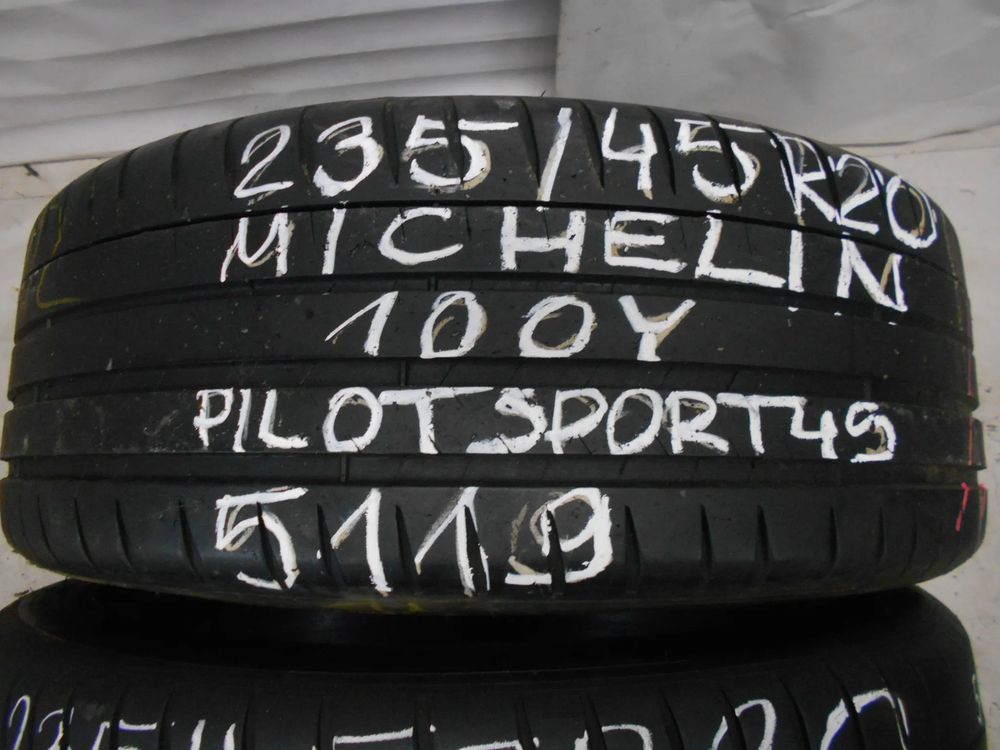 235/45R20
MICHELIN
100Y
PILOTSPORT4S
5119